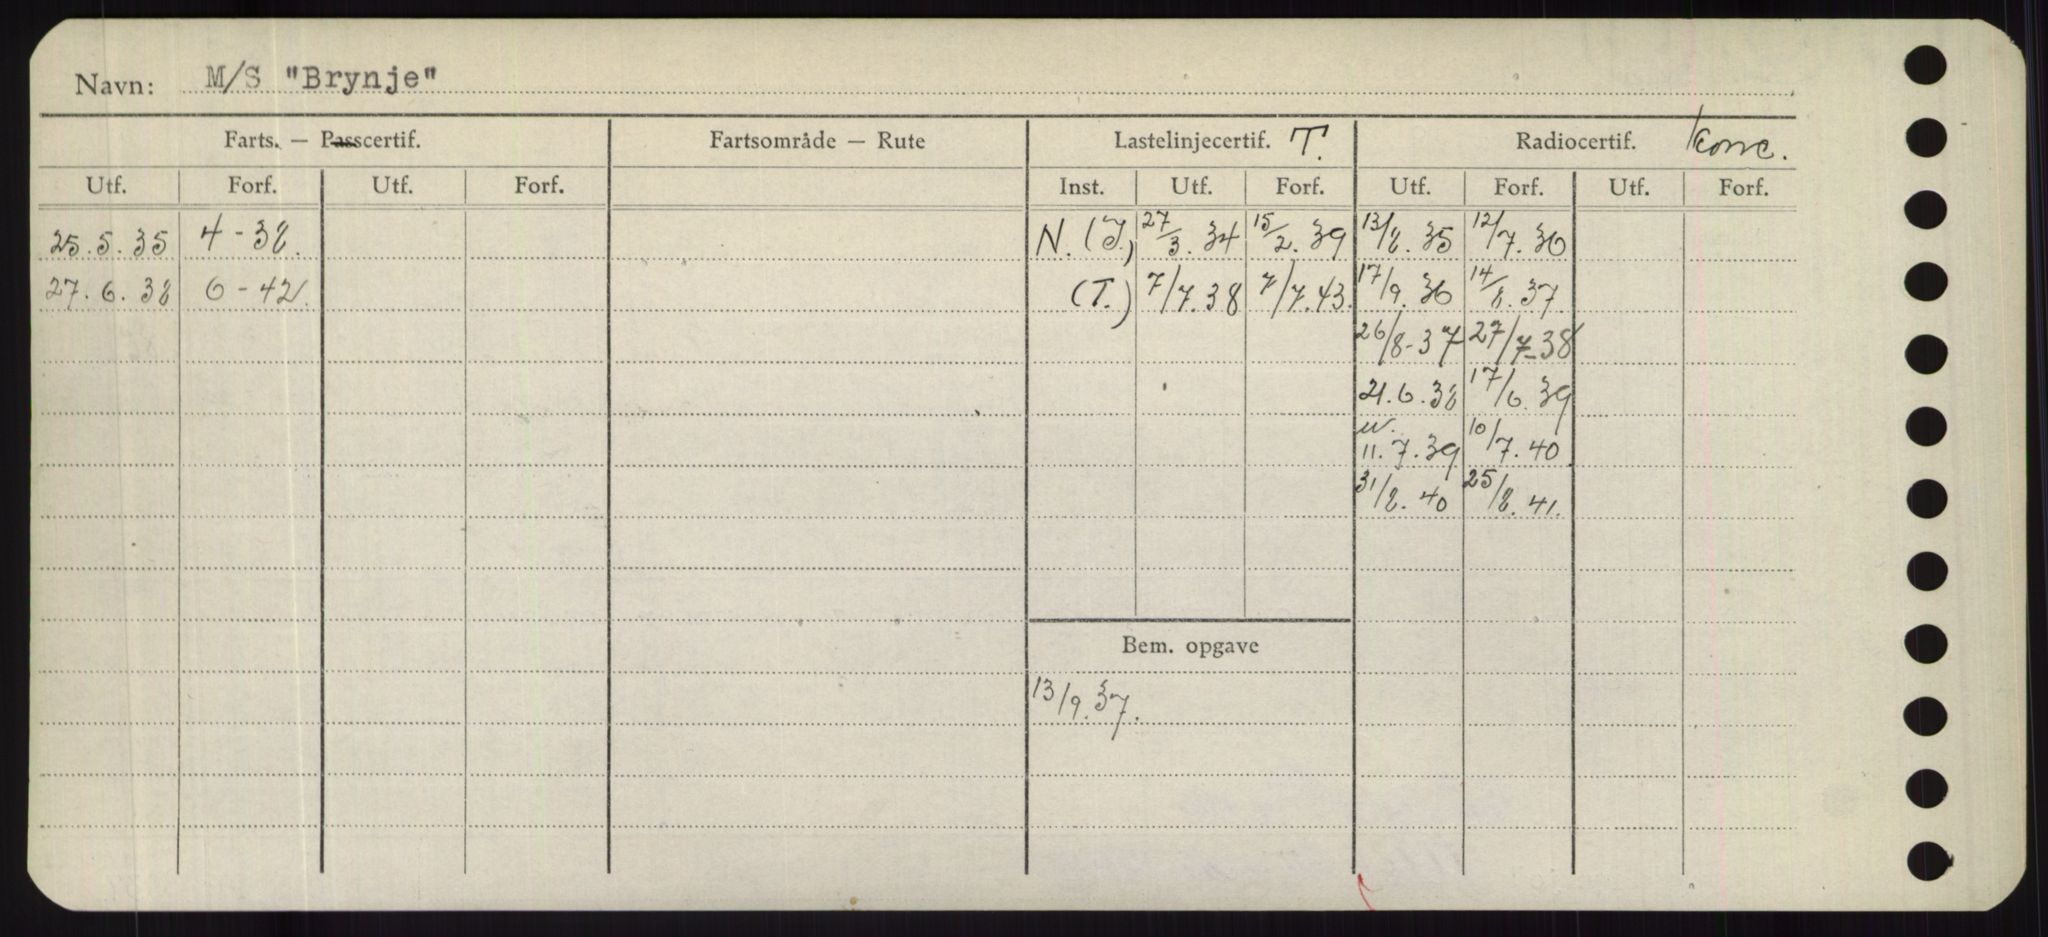 Navn: M/S "Brynje"
Farts. — Passcertif. Fartsområde — Rute Lastelinjecertif. T. Radiocertif. konc.
Utf. Forf. Utf. Forf. Inst. Utf. Forf. Utf. Forf. Utf. Forf.
25.5.35 4-38. N. (T.) 27/3.34 15/2.39 13/8.35 12/7.36
27.6.38 6-42. (T.) 7/7.38 7/7.43. 17/9.36 14/8.37.
26/8-37 27/7-38
21.6.38 17/6.39
11.7.39 10/7.40
31/8.40 25/8.41.
Bem. opgave
13/9.37.